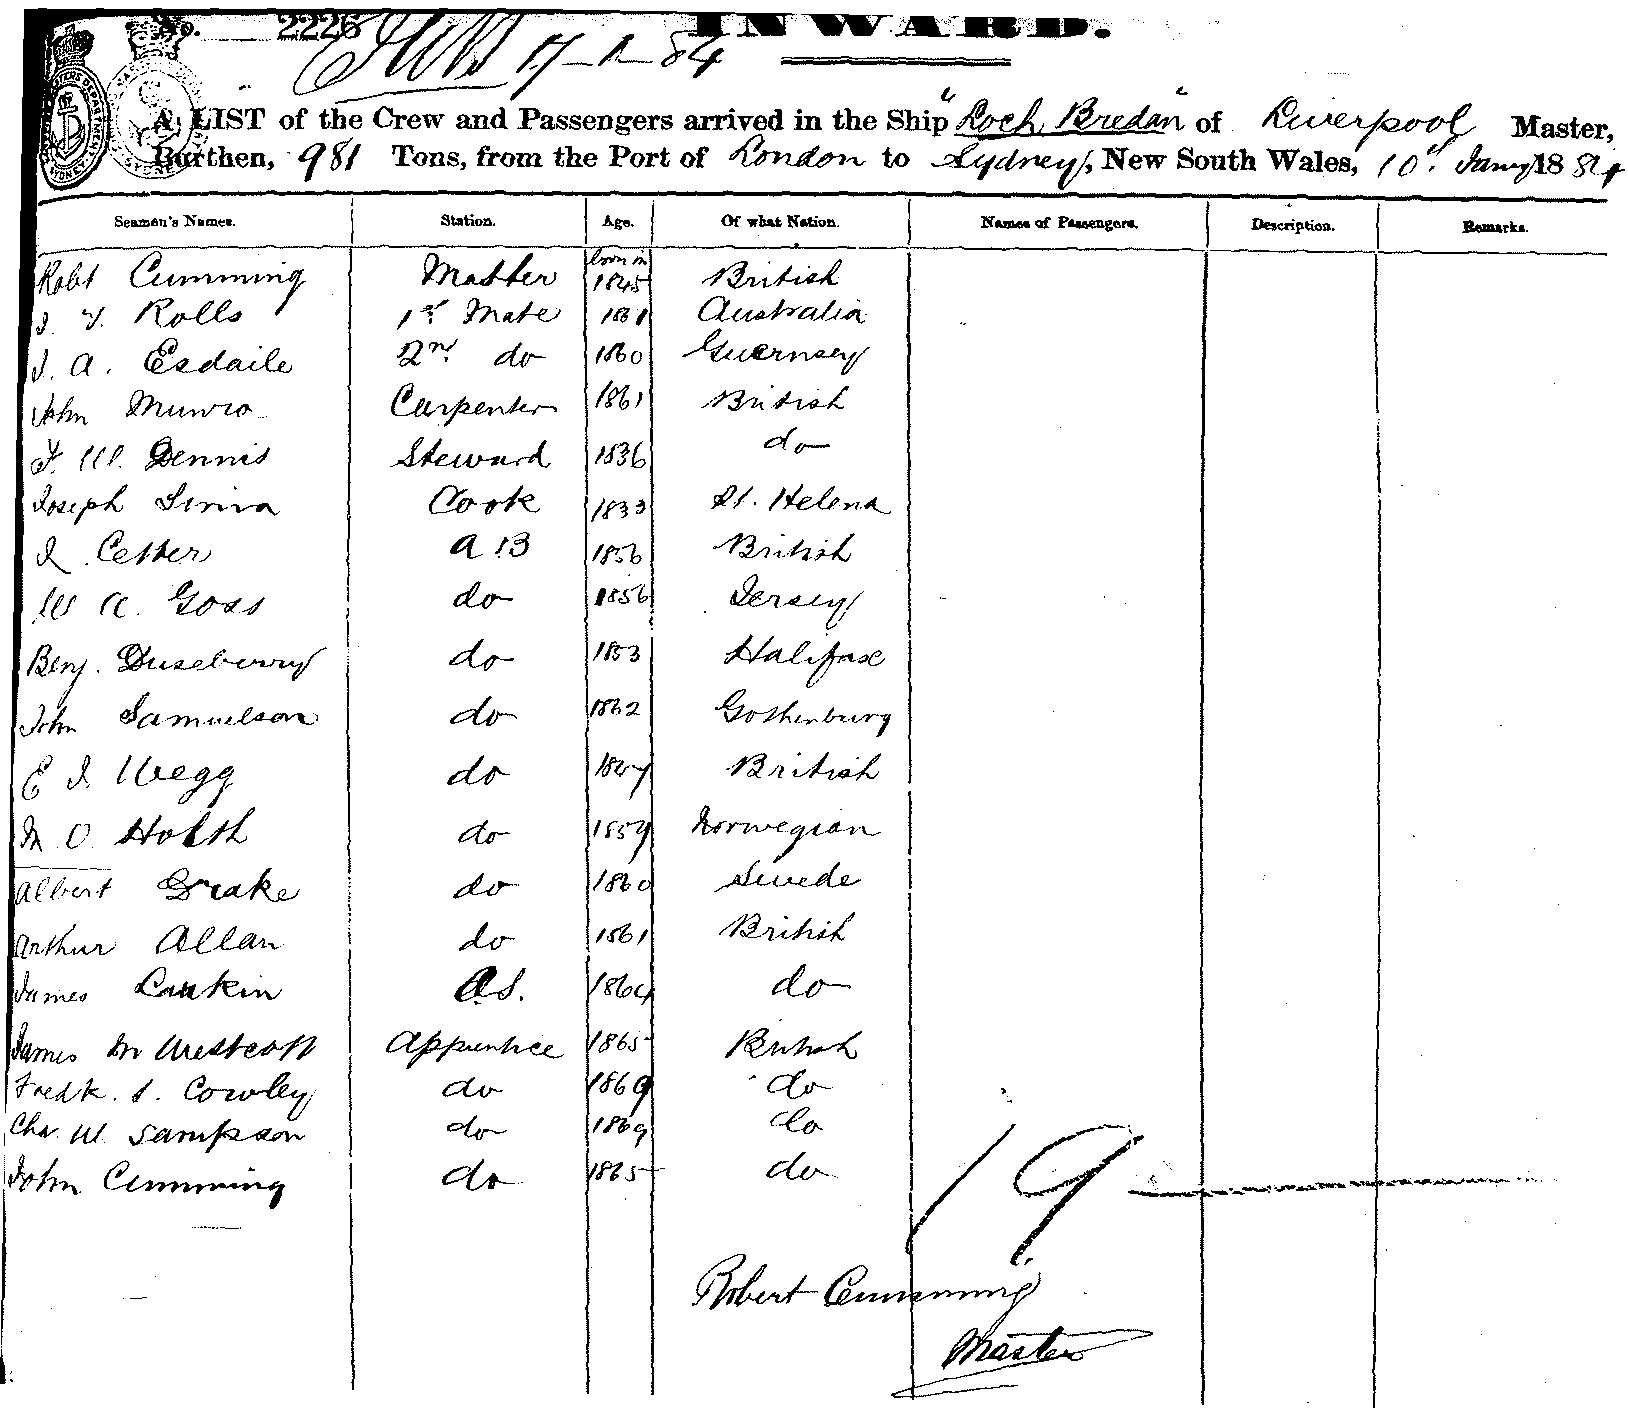 No. 2226 INWARD.
17-1-84
A LIST of the Crew and Passengers arrived in the Ship "Loch Bredan" of Liverpool Master,
Burthen, 981 Tons, from the Port of London to Sydney, New South Wales, 10th Jany 1884
Seamen's Names. Station. Age. Of what Nation. Names of Passengers. Description. Remarks.
born in
Robt Cumming Master 1845 British
J. Y. Rolls 1st Mate 1861 Australia
J. A. Esdaile 2nd do 1860 Guernsey
John Munro Carpenter 1861 British
F. W. Dennis Steward 1836 do
Joseph Cook 1833 St. Helena
J. Cether A B 1856 British
W A. Goss do 1856 Jersey
Benj. Duseberry do 1853 Halifax
John Samuelson do 1862 Gothenburg
E J Wegg do British
M O. Holth do 1859 Norwegian
Albert Drake do 1860 Swede
Arthur Allan do 1861 British
James Larkin O.S. 1864 do
James M Westcott Apprentice 1865 British
Fredk. S. Cowley do 1869 do
Cha. W. Sampson do 1869 do
John Cumming do 1865 do
19
Robert Cumming
Master